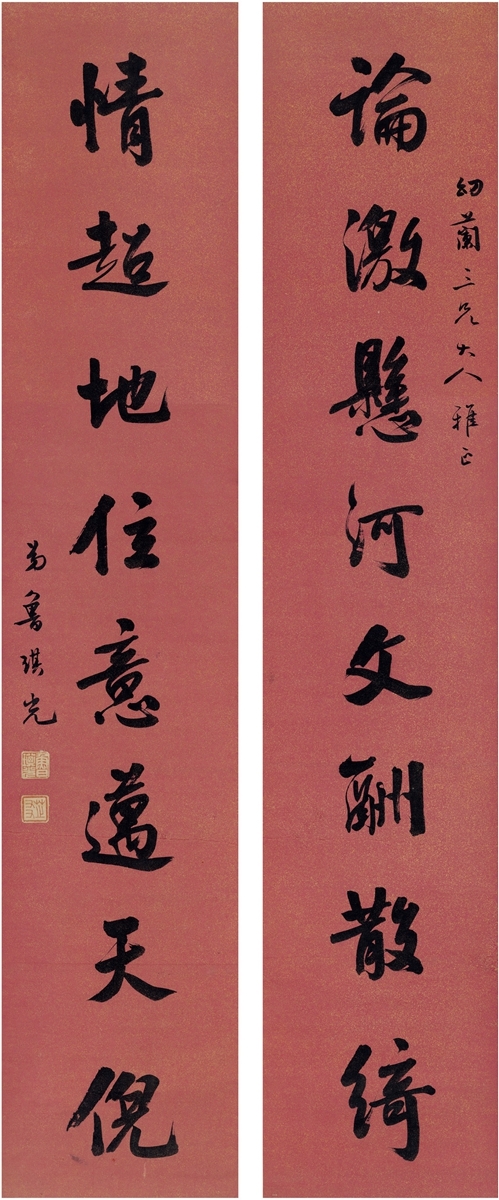 幼蘭三兄大人雅正
論激懸河文酬散綺
情超地住意邁天倪
弟魯琪光